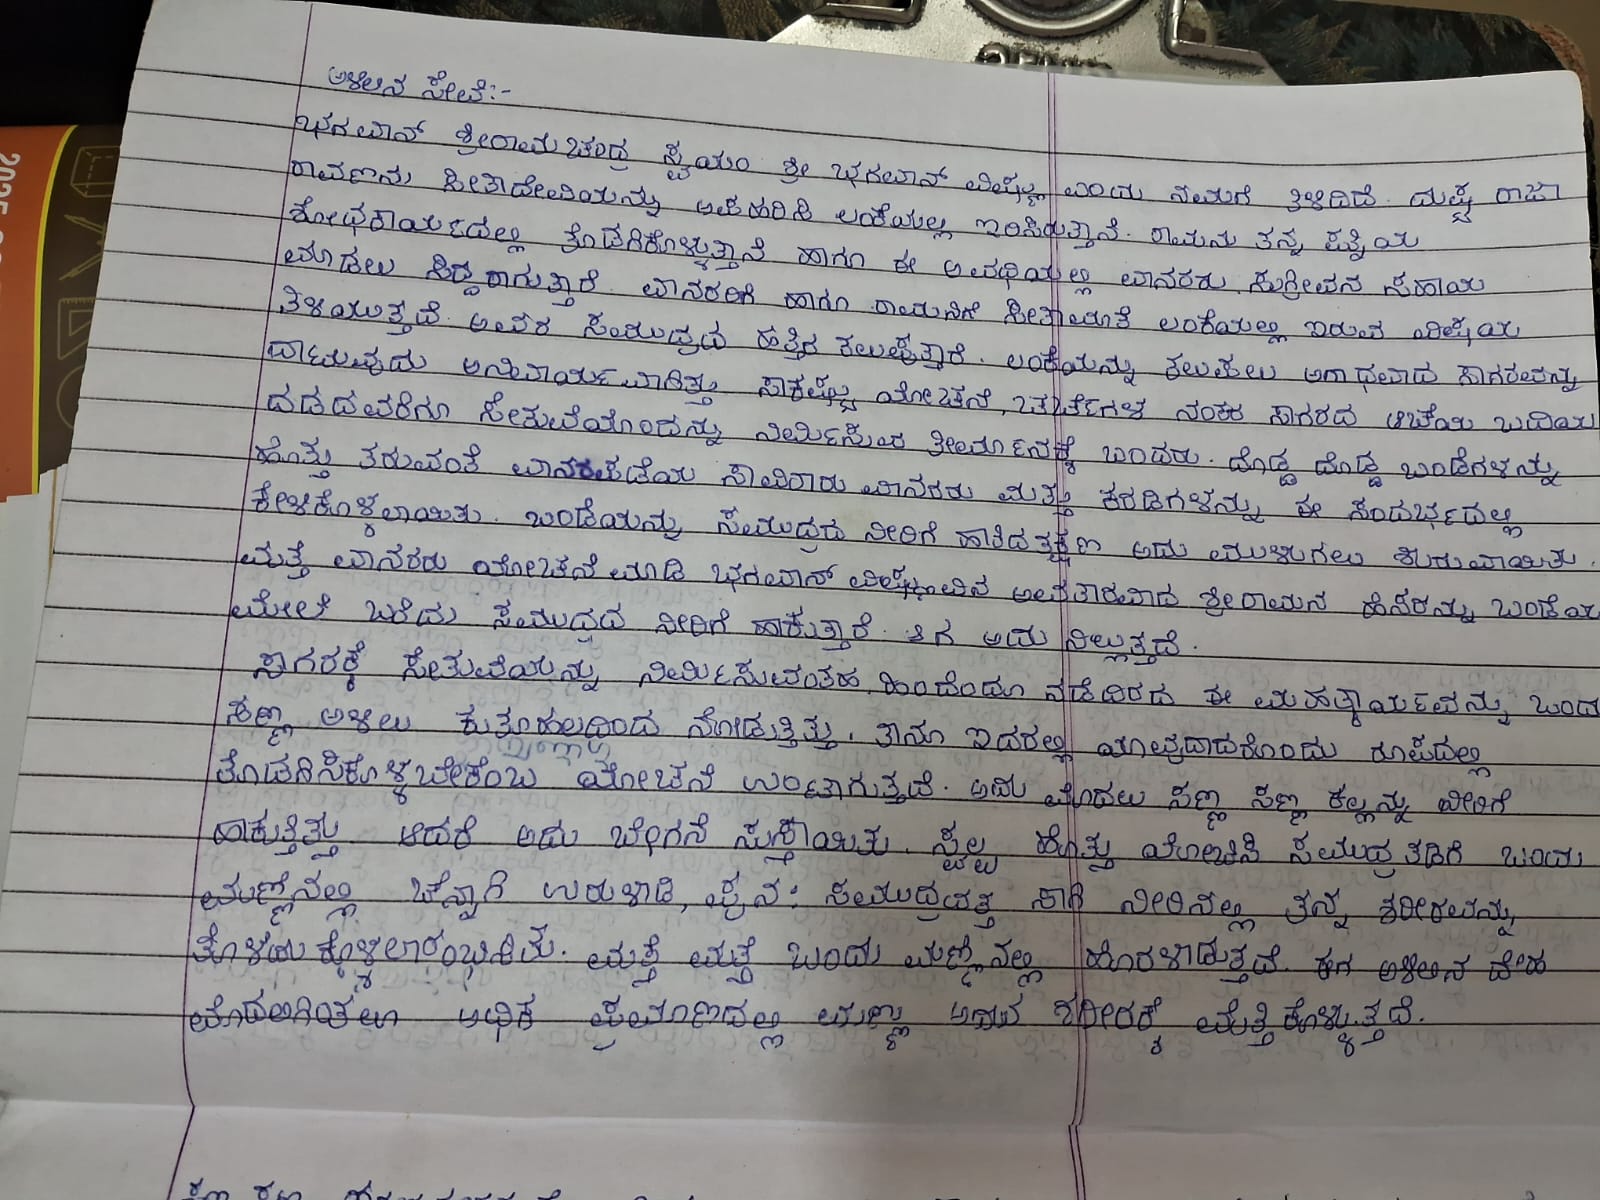 ಅಳಿಲಿನ ಸೇವೆ:-
ಭಗವಾನ್ ಶ್ರೀರಾಮಚಂದ್ರ ಸ್ವಯಂ ಶ್ರೀ ಭಗವಾನ್ ವಿಷ್ಣು ಎಂದು ನಮಗೆ ತಿಳಿದಿದೆ. ದುಷ್ಟ ರಾಜಾ
ರಾವಣನು ಸೀತಾದೇವಿಯನ್ನು ಅಪಹರಿಸಿ ಲಂಕೆಯಲ್ಲಿ ಇರಿಸಿರುತ್ತಾನೆ. ರಾಮನು ತನ್ನ ಪತ್ನಿಯ
ಶೋಧಕಾರ್ಯದಲ್ಲಿ ತೊಡಗಿಕೊಳ್ಳುತ್ತಾನೆ ಹಾಗೂ ಈ ಅವಧಿಯಲ್ಲಿ ವಾನರರು, ಸುಗ್ರೀವನ ಸಹಾಯ
ಮಾಡಲು ಸಿದ್ದರಾಗುತ್ತಾರೆ. ವಾನರರಿಗೆ ಹಾಗೂ ರಾಮನಿಗೆ ಸೀತಾಮಾತೆ ಲಂಕೆಯಲ್ಲಿ ಇರುವ ವಿಷಯ
ತಿಳಿಯುತ್ತದೆ. ಅವರ ಸಮುದ್ರದ ಹತ್ತಿರ ತಲುಪುತ್ತಾರೆ. ಲಂಕೆಯನ್ನು ತಲುಪಲು ಅಗಾಧವಾದ ಸಾಗರವನ್ನು
ದಾಟುವುದು ಅನಿವಾರ್ಯವಾಗಿತ್ತು ಸಾಕಷ್ಟು ಯೋಚನೆ, ಚರ್ಚೆಗಳ ನಂತರ ಸಾಗರದ ಆಚೆಯ ಬದಿಯ
ದಡದವರೆಗೂ ಸೇತುವೆಯೊಂದನ್ನು ನಿರ್ಮಿಸುವ ತೀರ್ಮಾನಕ್ಕೆ ಬಂದರು. ದೊಡ್ಡ ದೊಡ್ಡ ಬಂಡೆಗಳನ್ನು
ಹೊತ್ತು ತರುವಂತೆ ವಾನರಪಡೆಯ ಸಾವಿರಾರು ವಾನರರು ಮತ್ತು ಕರಡಿಗಳನ್ನು ಈ ಸಂದರ್ಭದಲ್ಲಿ
ಕೇಳಿಕೊಳ್ಳಲಾಯಿತು. ಬಂಡೆಯನ್ನು ಸಮುದ್ರದ ನೀರಿಗೆ ಹಾಕಿದ ತಕ್ಷಣ ಅದು ಮುಳುಗಲು ಶುರುವಾಯಿತು.
ಮತ್ತೆ ವಾನರರು ಯೋಚನೆ ಮಾಡಿ ಭಗವಾನ್ ವಿಷ್ಣುವಿನ ಅವತಾರವಾದ ಶ್ರೀರಾಮನ ಹೆಸರನ್ನು ಬಂಡೆಯ
ಮೇಲೆ ಬರೆದು ಸಮುದ್ರದ ನೀರಿಗೆ ಹಾಕುತ್ತಾರೆ. ಆಗ ಅದು ನಿಲ್ಲುತ್ತದೆ.
ಸಾಗರಕ್ಕೆ ಸೇತುವೆಯನ್ನು ನಿರ್ಮಿಸುವಂತಹ ಹಿಂದೆಂದೂ ನಡೆದಿರದ ಈ ಮಹತ್ಕಾರ್ಯವನ್ನು ಒಂದು
ಸಣ್ಣ ಅಳಿಲು ಕುತೂಹಲದಿಂದ ನೋಡುತ್ತಿತ್ತು. ತಾನೂ ಇದರಲ್ಲಿ ಯಾವುದಾದರೊಂದು ರೂಪದಲ್ಲಿ
ತೊಡಗಿಸಿಕೊಳ್ಳಬೇಕೆಂಬ ಯೋಚನೆ ಉಂಟಾಗುತ್ತದೆ. ಅದು ಮೊದಲು ಸಣ್ಣ ಸಣ್ಣ ಕಲ್ಲನ್ನು ನೀರಿಗೆ
ಹಾಕುತ್ತಿತ್ತು ಆದರೆ ಅದು ಬೇಗನೆ ಸುಸ್ತಾಯಿತು. ಸ್ವಲ್ಪ ಹೊತ್ತು ಯೋಚಿಸಿ ಸಮುದ್ರ ತಡಿಗೆ ಬಂದು
ಮಣ್ಣಿನಲ್ಲಿ ಚೆನ್ನಾಗಿ ಉರುಳಾಡಿ, ಪುನ: ಸಮುದ್ರದತ್ತ ಸಾಗಿ ನೀರಿನಲ್ಲಿ ತನ್ನ ಶರೀರವನ್ನು
ತೊಳೆದುಕೊಳ್ಳಲಾರಂಭಿಸಿತು. ಮತ್ತೆ ಮತ್ತೆ ಬಂದು ಮಣ್ಣಿನಲ್ಲಿ ಹೊರಳಾಡುತ್ತದೆ. ಈಗ ಅಳಿಲಿನ ದೇಹ
ಮೊದಲಿಗಿಂತಲೂ ಅಧಿಕ ಪ್ರಮಾಣದಲ್ಲಿ ಮಣ್ಣು ಅದರ ಶರೀರಕ್ಕೆ ಮೆತ್ತಿಕೊಳ್ಳುತ್ತದೆ.